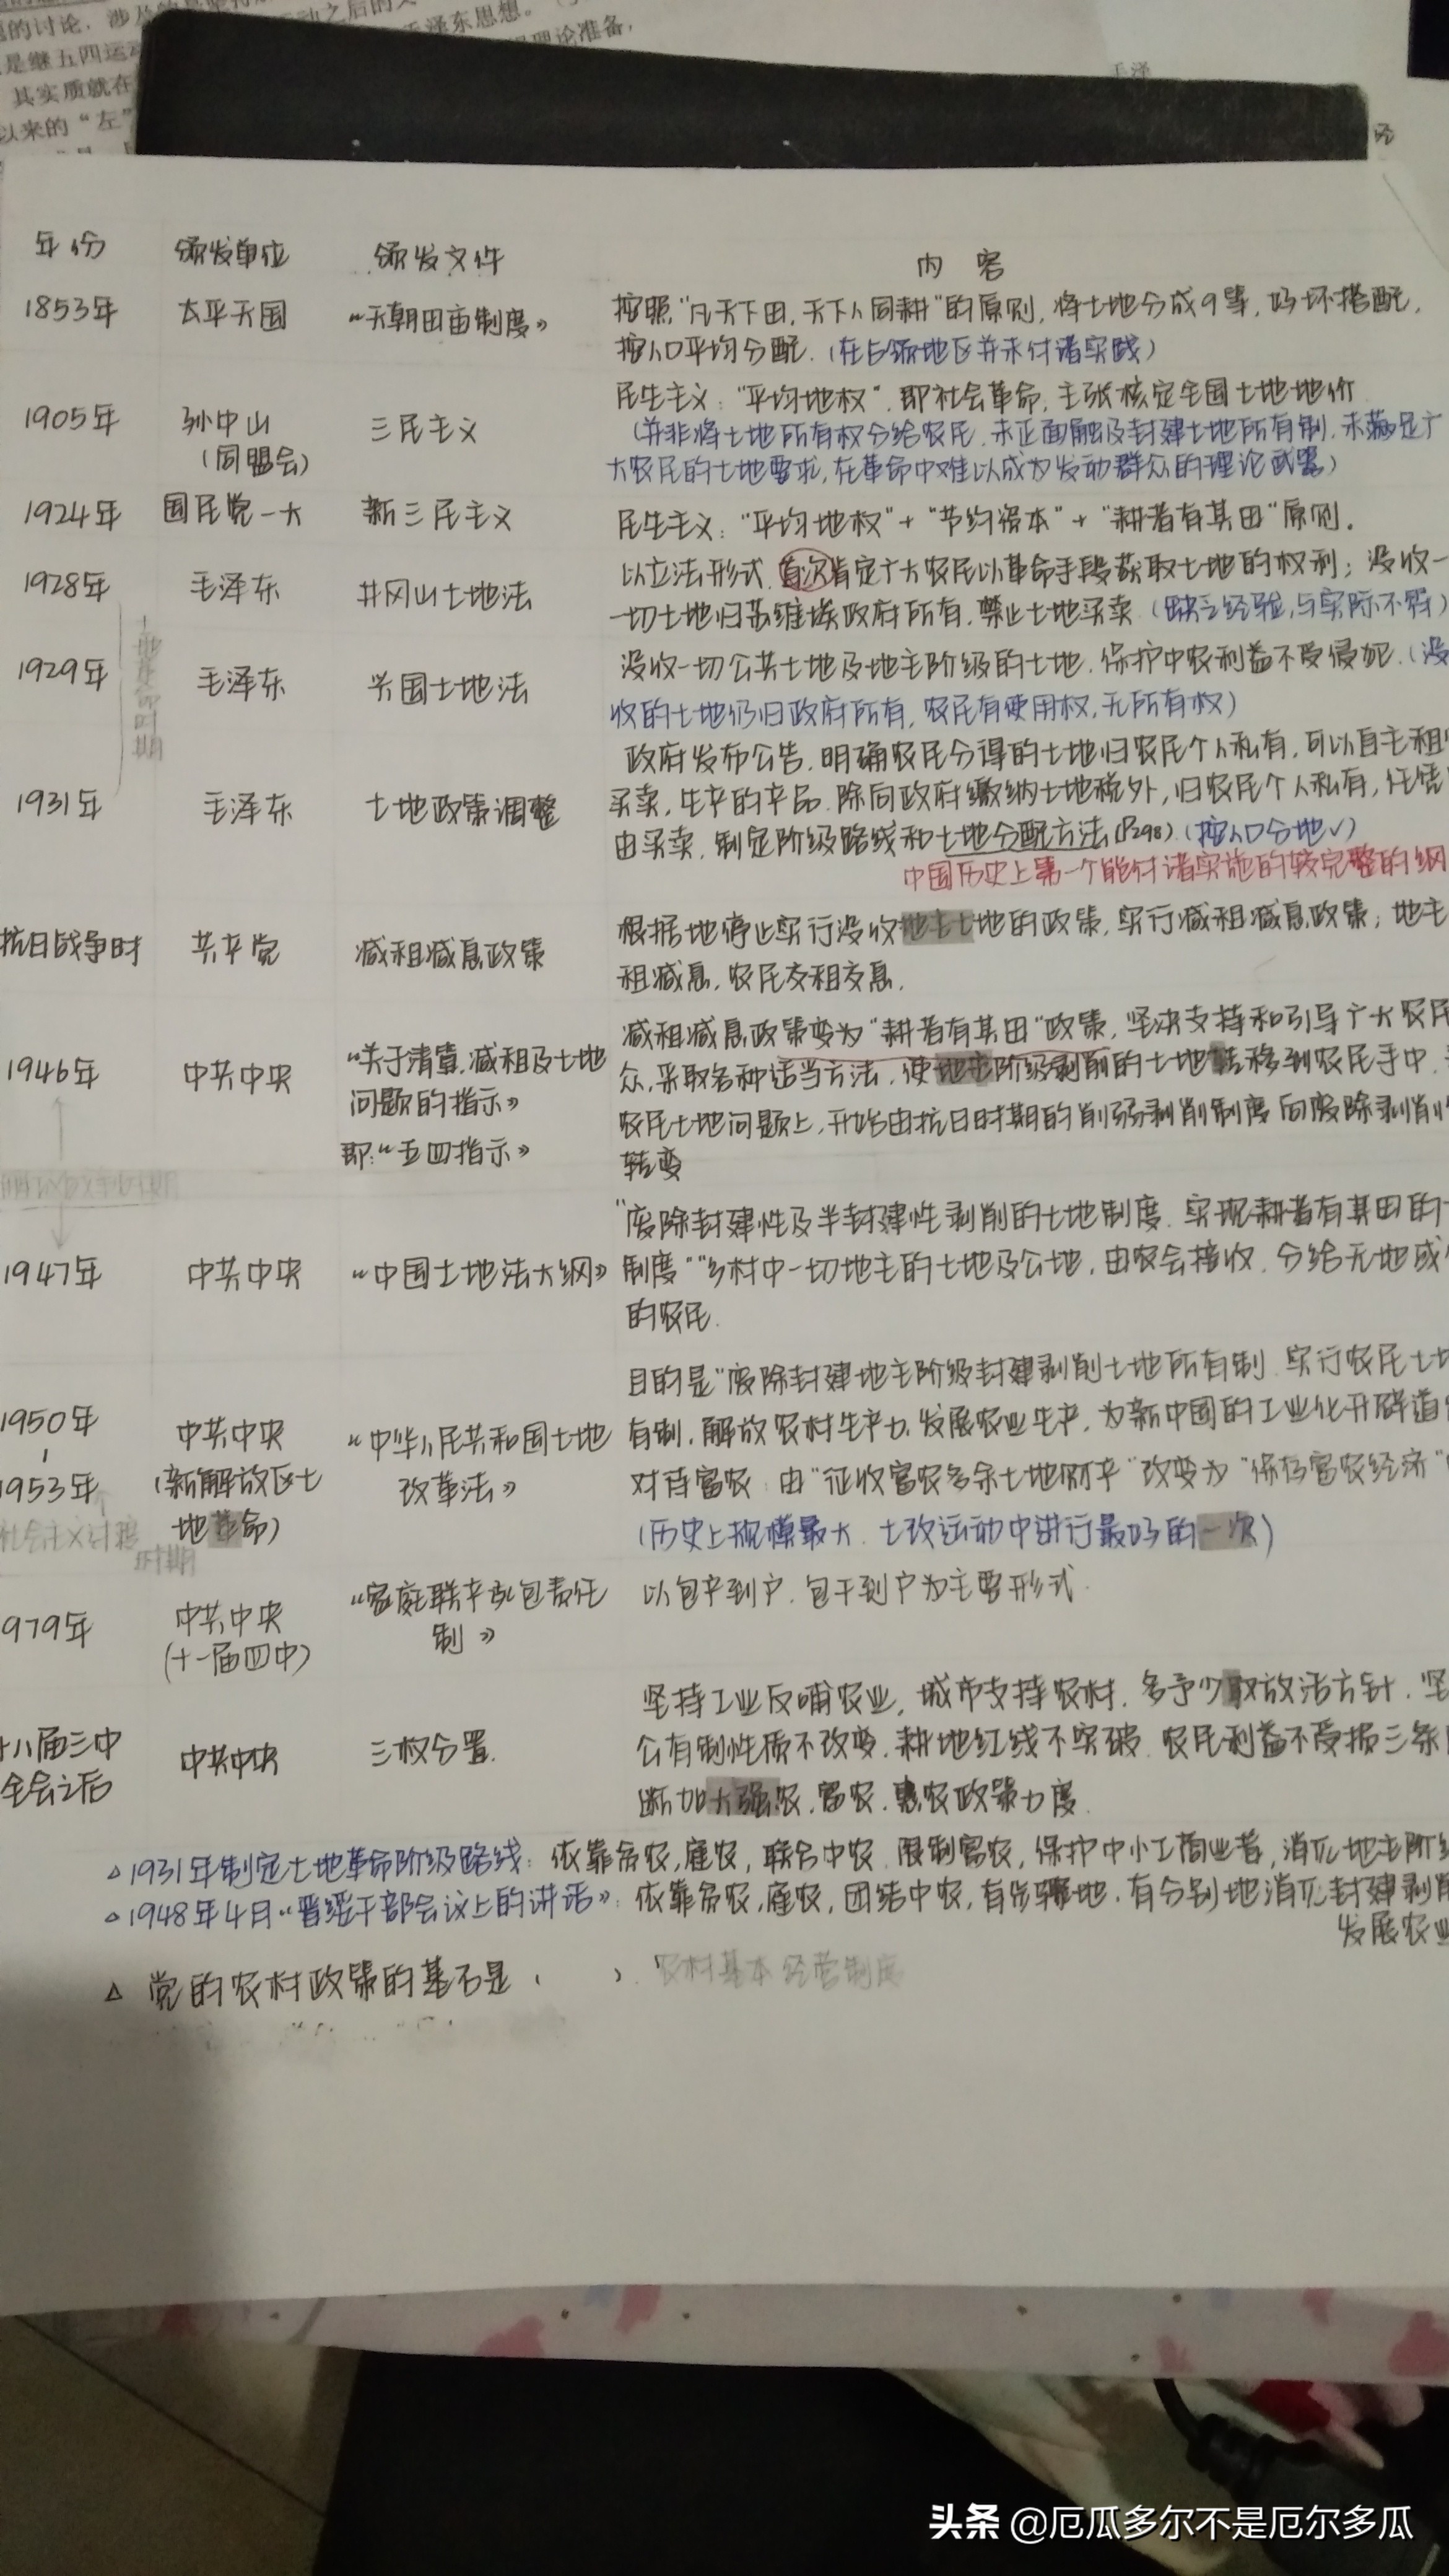 的讨论，涉及的
是继五四运动之后的
毛泽东思想。
理论准备，
其实质就在
以来的“左”
毛泽
年份 颁发单位 颁发文件 内容
1853年 太平天国 《天朝田亩制度》 按照“凡天下田，天下人同耕”的原则，将土地分成9等，好坏搭配，
按人口平均分配．（在占领地区并未付诸实践）
1905年 孙中山（同盟会） 三民主义 民生主义：“平均地权”．即社会革命，主张核定全国土地地价
（并非将土地所有权分给农民，未正面触及封建土地所有制，未满足广
大农民的土地要求，在革命中难以成为发动群众的理论武器）
1924年 国民党一大 新三民主义 民生主义：“平均地权”+“节约资本”+“耕者有其田”原则．
1928年 毛泽东 井冈山土地法 以立法形式，首次肯定广大农民以革命手段获取土地的权利；没收一
一切土地归苏维埃政府所有，禁止土地买卖（缺乏经验，与实际不符）
土地革命时期
1929年 毛泽东 兴国土地法 没收一切公共土地及地主阶级的土地．保护中农利益不受侵犯．（没
收的土地仍归政府所有，农民有使用权，无所有权）
1931年 毛泽东 土地政策调整 政府发布公告，明确农民分得的土地归农民个人私有，可以自主租
买卖，生产的产品．除向政府缴纳土地税外，归农民个人私有，任凭
由买卖．制定阶级路线和土地分配方法（P298）（按人口分地✓）
中国历史上第一个能付诸实施的较完整的纲
抗日战争时 共产党 减租减息政策 根据地停止实行没收地主土地的政策，实行减租减息政策；地主
租减息，农民交租交息．
1946年 中共中央 《关于清算，减租及土地问题的指示》即：《五四指示》 减租减息政策变为“耕者有其田”政策，坚决支持和引导广大农民
众，采取各种适当方法，使地主阶级剥削的土地转移到农民手中．
农民土地问题上，开始由抗日时期的削弱剥削制度向废除剥削
转变
1947年 中共中央 《中国土地法大纲》 “废除封建性及半封建性剥削的土地制度．实现耕者有其田的
制度”“乡村中一切地主的土地及公地，由农会接收．分给无地或
的农民．
1950年-1953年 中共中央（新解放区土地革命） 《中华人民共和国土地改革法》 目的是“废除封建地主阶级封建剥削土地所有制．实行农民土地
有制，解放农村生产力，发展农业生产，为新中国的工业化开辟道
对待富农：由“征收富农多余土地财产”改变为“保存富农经济”
（历史上规模最大．土改运动中进行最好的一次）
社会主义过渡时期
979年 中共中央（十一届四中） 《家庭联产承包责任制》 以包产到户．包干到户为主要形式．
十八届三中全会之后 中共中央 三权分置． 坚持工业反哺农业，城市支持农村．多予少取放活方针．坚
公有制性质不改变，耕地红线不突破．农民利益不受损三条
断加大强农，富农，惠农政策力度．
△1931年制定土地革命阶级路线：依靠贫农，雇农，联合中农．限制富农，保护中小工商业者，消灭地主阶级
△1948年4月《晋绥干部会议上的讲话》：依靠贫农，雇农，团结中农，有步骤地，有分别地消灭封建剥削
发展农业
△ 党的农村政策的基石是（ ）．农村基本经营制度
头条 @厄瓜多尔不是厄尔多瓜